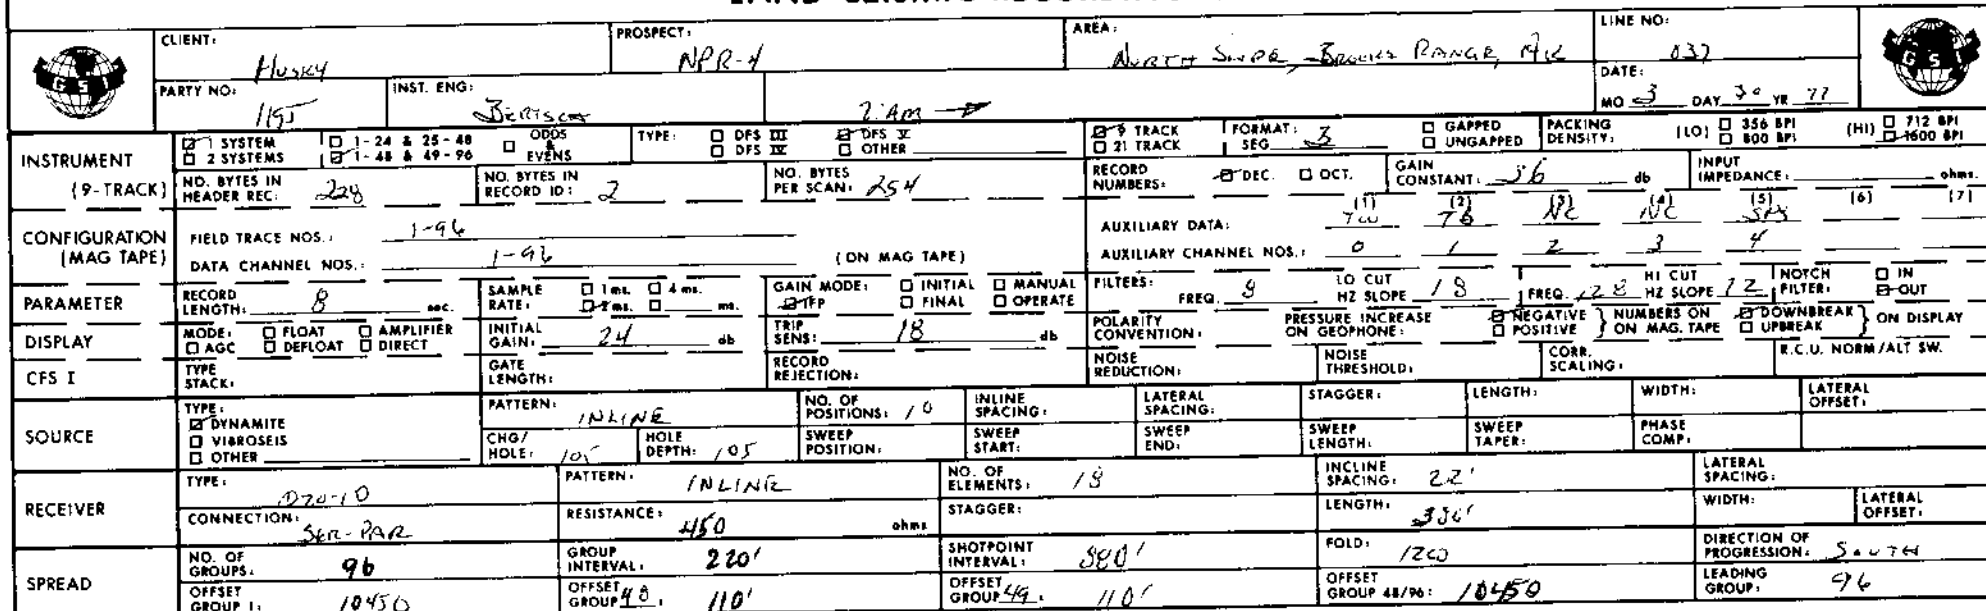 CLIENT: Husky PROSPECT: NPR-4 AREA: NORTH SLOPE, BROOKS RANGE, AK LINE NO: 037
GSI GSI
PARTY NO: 1195 INST. ENG: 2:AM → DATE: MO 3 DAY 30 YR 77
INSTRUMENT (9-TRACK)
1 SYSTEM 1-24 & 25-48 ODDS & EVENS TYPE: DFS III DFS V 9 TRACK FORMAT: SEG 3 GAPPED PACKING DENSITY: (LO) 356 BPI (HI) 712 BPI
2 SYSTEMS 1-48 & 49-96 DFS IV OTHER 21 TRACK UNGAPPED 800 BPI 1600 BPI
NO. BYTES IN HEADER REC: 228 NO. BYTES IN RECORD ID: 2 NO. BYTES PER SCAN: 254 RECORD NUMBERS: DEC. OCT. GAIN CONSTANT: 36 db INPUT IMPEDANCE: ohms.
(1) (2) (3) (4) (5) (6) (7)
CONFIGURATION (MAG TAPE)
FIELD TRACE NOS.: 1-96 AUXILIARY DATA: TB NC NC
DATA CHANNEL NOS.: 1-96 (ON MAG TAPE) AUXILIARY CHANNEL NOS.: 0 1 2 3 4
PARAMETER RECORD LENGTH: 8 sec. SAMPLE RATE: 1 ms. 4 ms. 2 ms. ms. GAIN MODE: INITIAL MANUAL IFP FINAL OPERATE FILTERS: FREQ. 8 LO CUT HZ SLOPE 18 FREQ. 128 HI CUT HZ SLOPE 72 NOTCH FILTER: IN OUT
DISPLAY MODE: FLOAT AMPLIFIER AGC DEFLOAT DIRECT INITIAL GAIN: 24 db TRIP SENS: 18 db POLARITY CONVENTION: PRESSURE INCREASE ON GEOPHONE: NEGATIVE POSITIVE } NUMBERS ON ON MAG. TAPE DOWNBREAK UPBREAK } ON DISPLAY
CFS I TYPE STACK: GATE LENGTH: RECORD REJECTION: NOISE REDUCTION: NOISE THRESHOLD: CORR. SCALING: R.C.U. NORM/ALT SW.
SOURCE TYPE: DYNAMITE VIBROSEIS OTHER PATTERN: INLINE NO. OF POSITIONS: 10 INLINE SPACING: LATERAL SPACING: STAGGER: LENGTH: WIDTH: LATERAL OFFSET:
CHG/HOLE: 105 HOLE DEPTH: 105 SWEEP POSITION: SWEEP START: SWEEP END: SWEEP LENGTH: SWEEP TAPER: PHASE COMP:
RECEIVER TYPE: PATTERN: INLINE NO. OF ELEMENTS: 18 INCLINE SPACING: 22' LATERAL SPACING:
CONNECTION: SER-PAR RESISTANCE: 450 ohms STAGGER: LENGTH: WIDTH: LATERAL OFFSET:
SPREAD NO. OF GROUPS: 96 GROUP INTERVAL: 220' SHOTPOINT INTERVAL: 880' FOLD: 1200 DIRECTION OF PROGRESSION: SOUTH
OFFSET GROUP 1: 10450 OFFSET GROUP 48: 110' OFFSET GROUP 49: 110' OFFSET GROUP 48/96: 10450 LEADING GROUP: 96